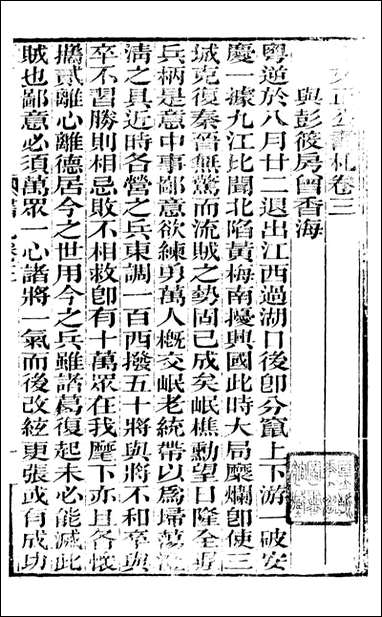 文正公書札卷三
與彭筱房曾香海
粵逆於八月廿二退出江西過湖口後卽分竄上下游一破安
慶一據九江比聞北陷黃梅南擾興國此時大局糜爛卽使三
城克復秦晉無驚而流賊之勢固已成矣岷樵勳望日隆全
兵柄是意中事鄙意欲練勇萬人概交岷老統帶以爲埽蕩
淸之具近時各營之兵東調一百西撥五十將與將不和卒與
卒不習勝則相忌敗不相救卽有十萬眾在我麾下亦且各懷
攜貳離心離德居今之世用今之兵雖諸葛復起未必能滅此
賊也鄙意必須萬眾一心諸將一氣而後改絃更張或有成功